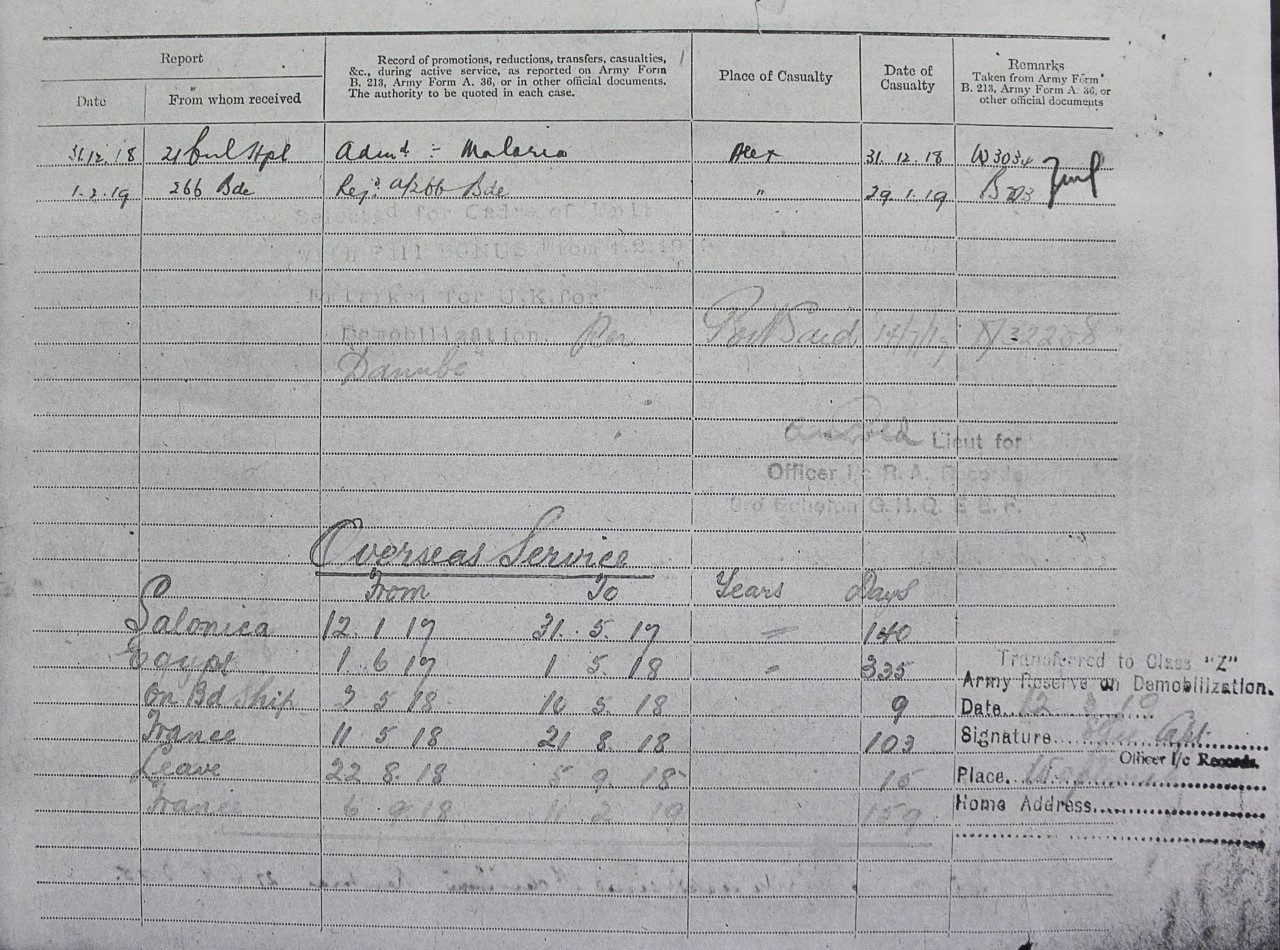 Report
Record of promotions, reductions, transfers, casualties, &c., during active service, as reported on Army Form B. 213, Army Form A. 36, or in other official documents. The authority to be quoted in each case.
Place of Casualty
Date of Casualty
Remarks
Taken from Army Form B. 213, Army Form A. 36, or other official documents
Date
From whom received
31.12.18 21 Hpl Admd :- Malaria Alex 31.12.18 W3034
1.2.19 266 Bde Rejd A/266 Bde " 29.1.19
Selected for Cadre of Unit
with Full BONUS from 1.2.19
Embarked for U.K. for
Demobilization. Per Port Said 14/7/19
"Danube"
Lieut for
Officer i/c R. A. Records
3rd Echelon G.H.Q. E.E.F.
Overseas Service
From To Years Days
Salonica 12 1 17 31 5 17 " 140
Egypt 1 6 17 1 5 18 " 335
On Bd Ship 2 5 18 10 5 18 9
France 11 5 18 21 8 18 103
Leave 22 8 18 5 9 18 15
France 6 9 18 11 2 19 159
Transferred to Class "Z"
Army Reserve on Demobilization.
Date 12 19
Signature Capt.
Officer I/c Records.
Place
Home Address